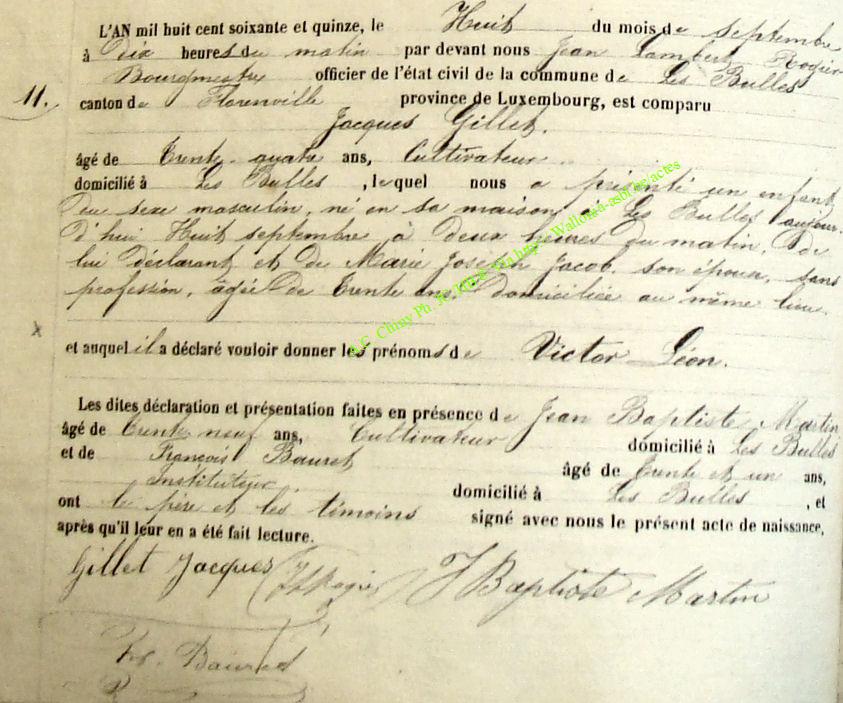 L'AN mil huit cent soixante et quinze, le Huit du mois de septembre
à dix heures du matin par devant nous Jean Lambert Rogier
Bourgmestre officier de l'état civil de la commune de Les Bulles
11. canton de Florenville province de Luxembourg, est comparu
Jacques Gillet.
âgé de Trente-quatre ans, Cultivateur
domicilié à Les Bulles , lequel nous a présenté un enfant
du sexe masculin, né en sa maison, à Les Bulles aujour-
d'hui Huit septembre à deux heures du matin, de
lui déclarant et de Marie Joseph Jacob, son épouse, sans
profession, âgée de Trente ans, domiciliée au même lieu.
x
et auquel il a déclaré vouloir donner les prénoms de Victor Léon.
Les dites déclaration et présentation faites en présence de Jean Baptiste Martin
âgé de Trente neuf ans, Cultivateur domicilié à Les Bulles
et de François Bauret âgé de Trente et un ans,
Instituteur domicilié à Les Bulles , et
ont le père et les témoins signé avec nous le présent acte de naissance,
après qu'il leur en a été fait lecture.
Gillet Jacques JLRogier JBaptiste Martin
Fr. Bauret
A.C. Chiny Ph. Wallonia-asbl.be/actes